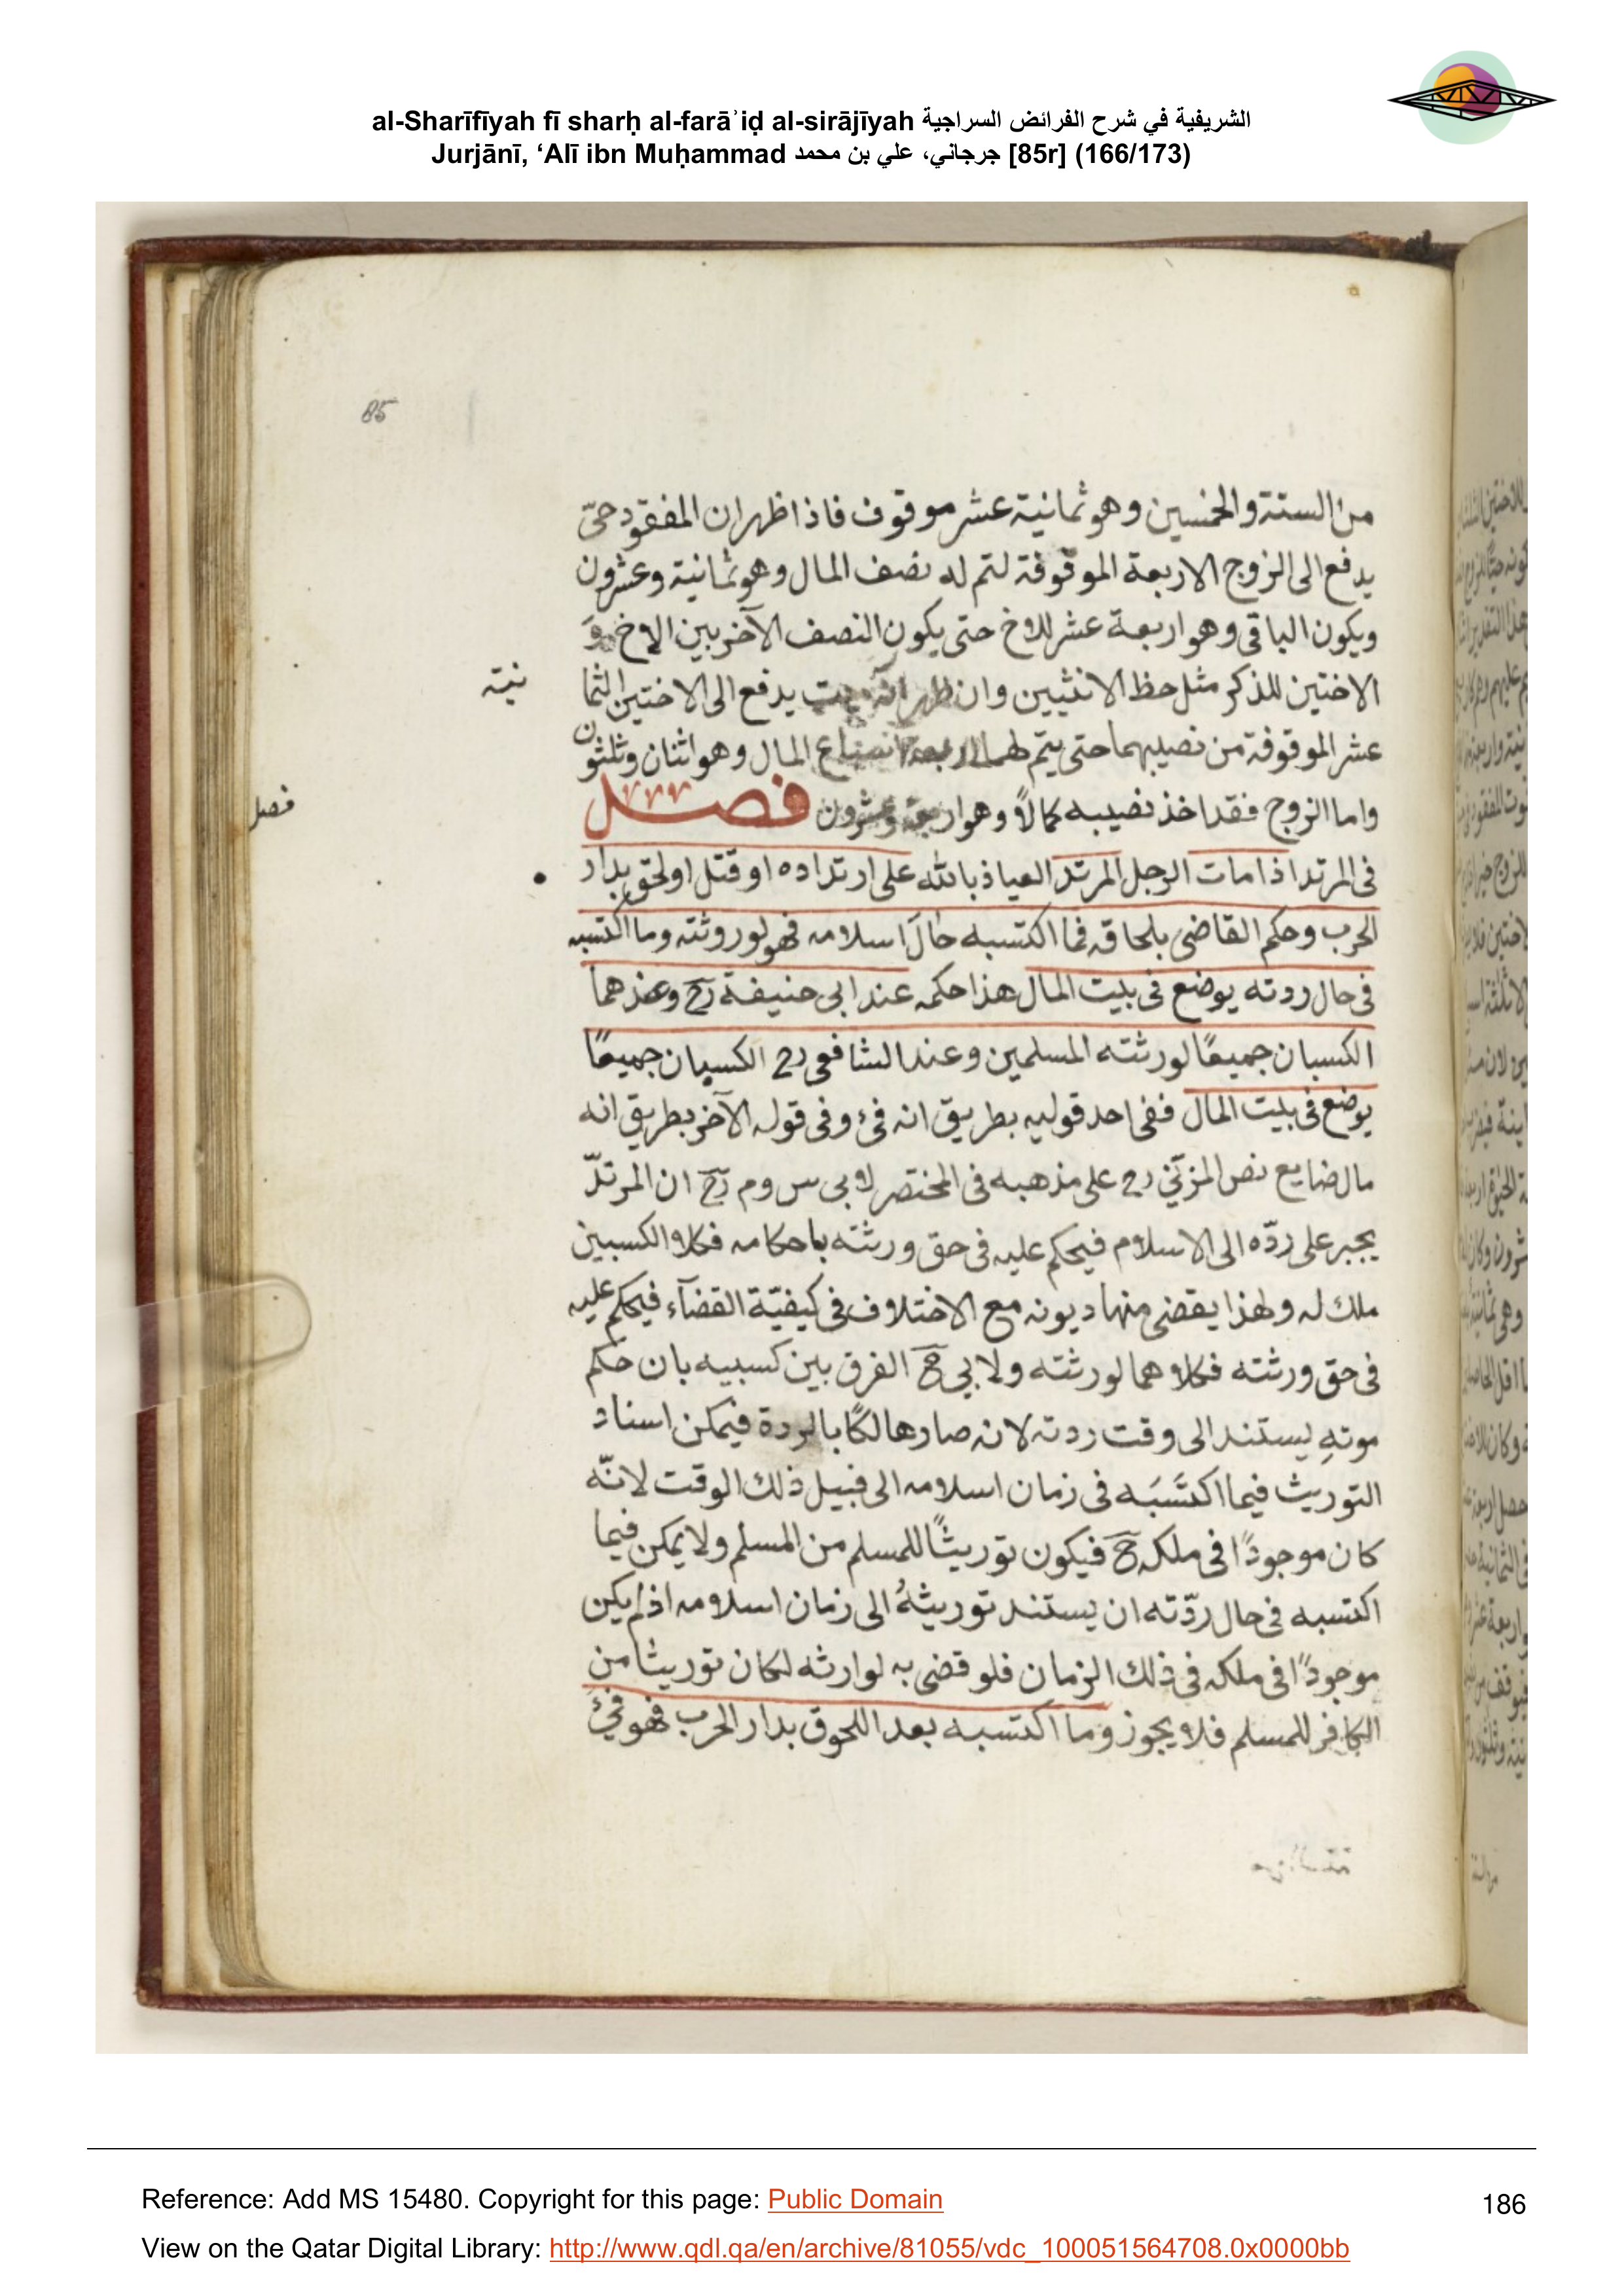 al-Sharīfīyah fī sharḥ al-farāʾiḍ al-sirājīyah الشريفية في شرح الفرائض السراجية
Jurjānī, ‘Alī ibn Muḥammad جرجاني، علي بن محمد [85r] (166/173)
85
من الستة والخمسين وهو ثمانية عشر موقوف فاذا ظهر ان المفقود حىّ
يدفع الى الزوج الاربعة الموقوفة لتم له نصف المال وهو ثمانية وعشرون
ويكون الباقى وهو اربعة عشر للاخ حتى يكون النصف الآخر بين الاخ و
الاختين للذكر مثل حظ الانثيين وان ظهر انه ميت يدفع الى الاختين الثما
نية
عشر الموقوفة من نصيبهما حتى يتم لهما اربعة اسباع المال وهو اثنان وثلثون
واما الزوج فقد اخذ نصيبه كملاً وهو اربعة وعشرون فصل
فصل
فى المرتد اذا مات الرجل المرتد العياذ بالله على ارتداده او قتل او لحق بدار
الحرب وحكم القاضى بلحاقه فما اكتسبه حال اسلامه فهو لورثته وما اكتسبه
فى حال ردته يوضع فى بيت المال هذا حكمه عند ابى حنيفة رح وعندهما
الكسبان جميعًا لورثته المسلمين وعند الشافعى رح الكسبان جميعًا
يوضع فى بيت المال ففى احد قوليه بطريق انه فئ وفى قوله الآخر بطريق انه
مال ضايع نص المزنى رح على مذهبه فى المختصر لابى س وم رح ان المرتدّ
يجبر على ردّه الى الاسلام فيحكم عليه فى حق ورثته باحكامه فكلا الكسبين
ملك له ولهذا يقضى منها ديونه مع الاختلاف فى كيفيّة القضآء فيحكم عليه
فى حق ورثته فكلاهما لورثته ولابى ح الفرق بين كسبيه بان حكم
موتهِ يستند الى وقت ردته لانه صار هالكًا بالردة فيمكن اسناد
التوريث فيما اكتَسَبَه فى زمان اسلامه الى قبيل ذلك الوقت لانّه
كان موجودًا فى ملكه ح فيكون توريثًا للمسلم من المسلم ولا يمكن فيما
اكتسبه فى حال ردّته ان يستند توريثهُ الى زمان اسلامه اذ لم يكن
موجودًا فى ملكه فى ذلك الزمان فلو قضى به لوارثه لكان توريثا من
الكافر للمسلم فلا يجوز وما اكتسبه بعد اللحوق بدار الحرب فهو فئ
Reference: Add MS 15480. Copyright for this page: Public Domain
186
View on the Qatar Digital Library: http://www.qdl.qa/en/archive/81055/vdc_100051564708.0x0000bb